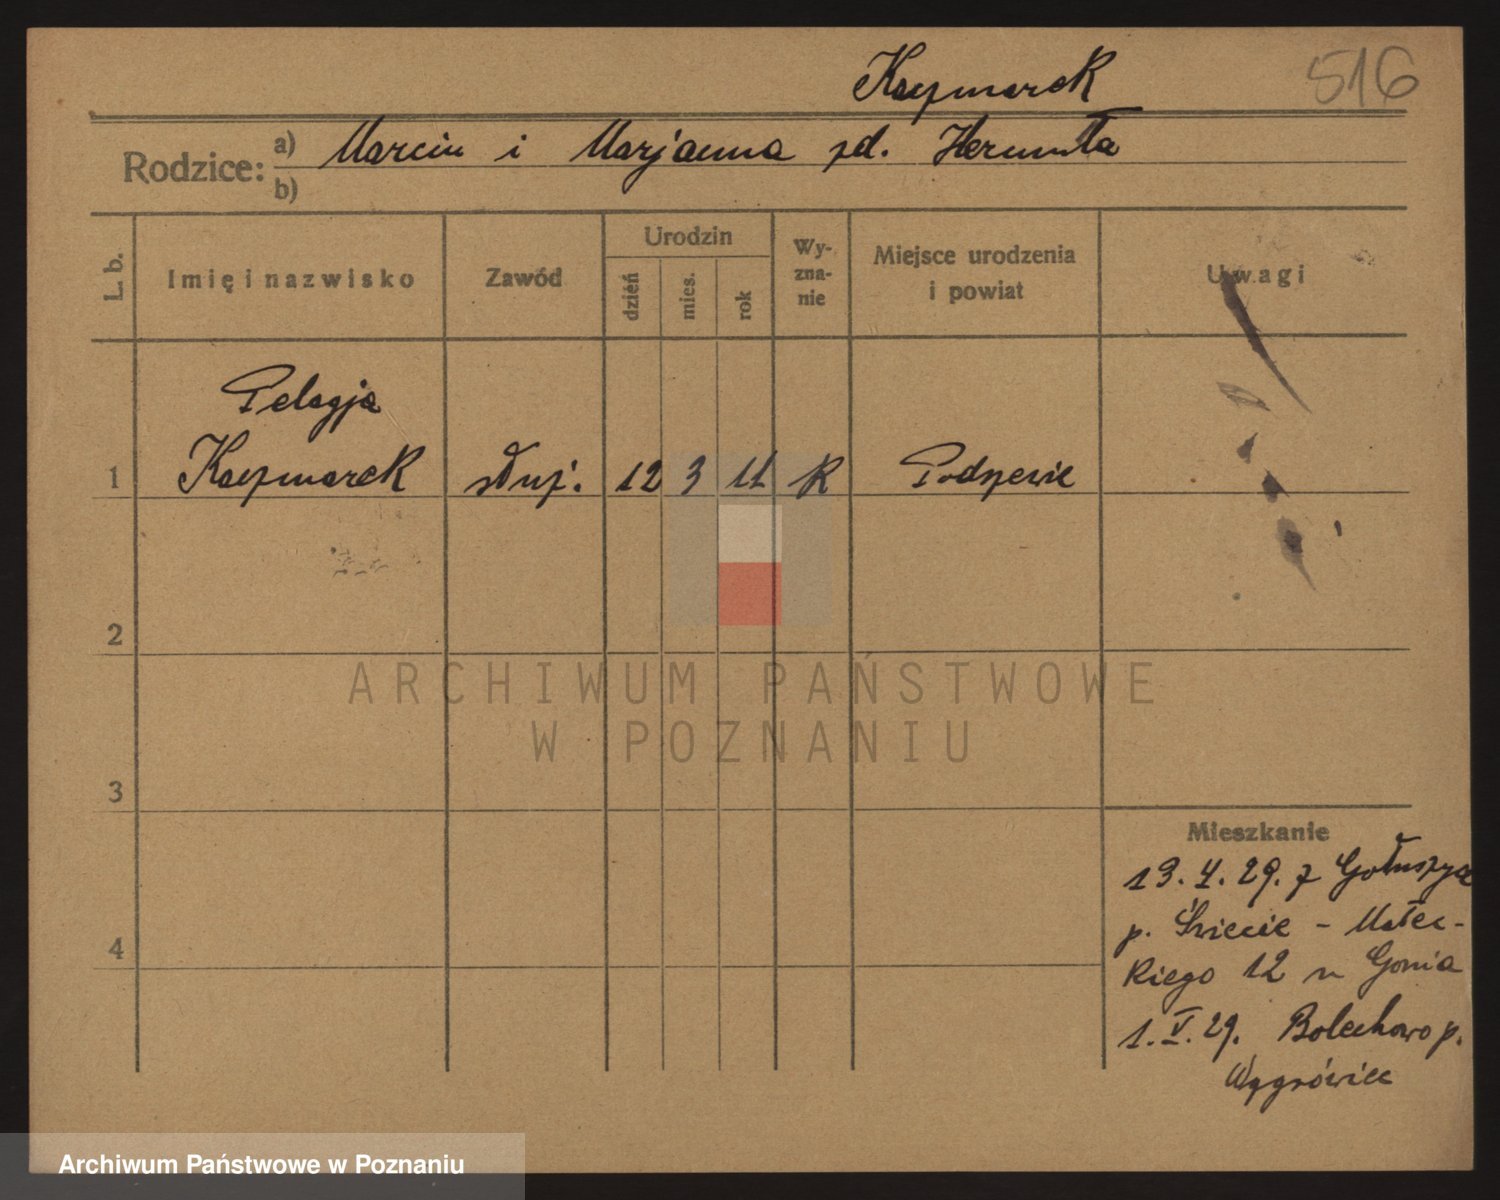 Kaczmarek 516
Rodzice: a) Marcin i Marjanna zd.
b)
L. b. Imię i nazwisko Zawód Urodzin dzień mies. rok Wy-zna-nie Miejsce urodzenia i powiat Uwagi
Pelagja
1 Kaczmarek służ. 12 3 11 R
2
3
4
Mieszkanie
13. 29. z
p. Świecie - Małec-
kiego 12 u
1. V. 29. Bolechowo p.
Wągrówiec
ARCHIWUM PAŃSTWOWE
W POZNANIU
Archiwum Państwowe w Poznaniu